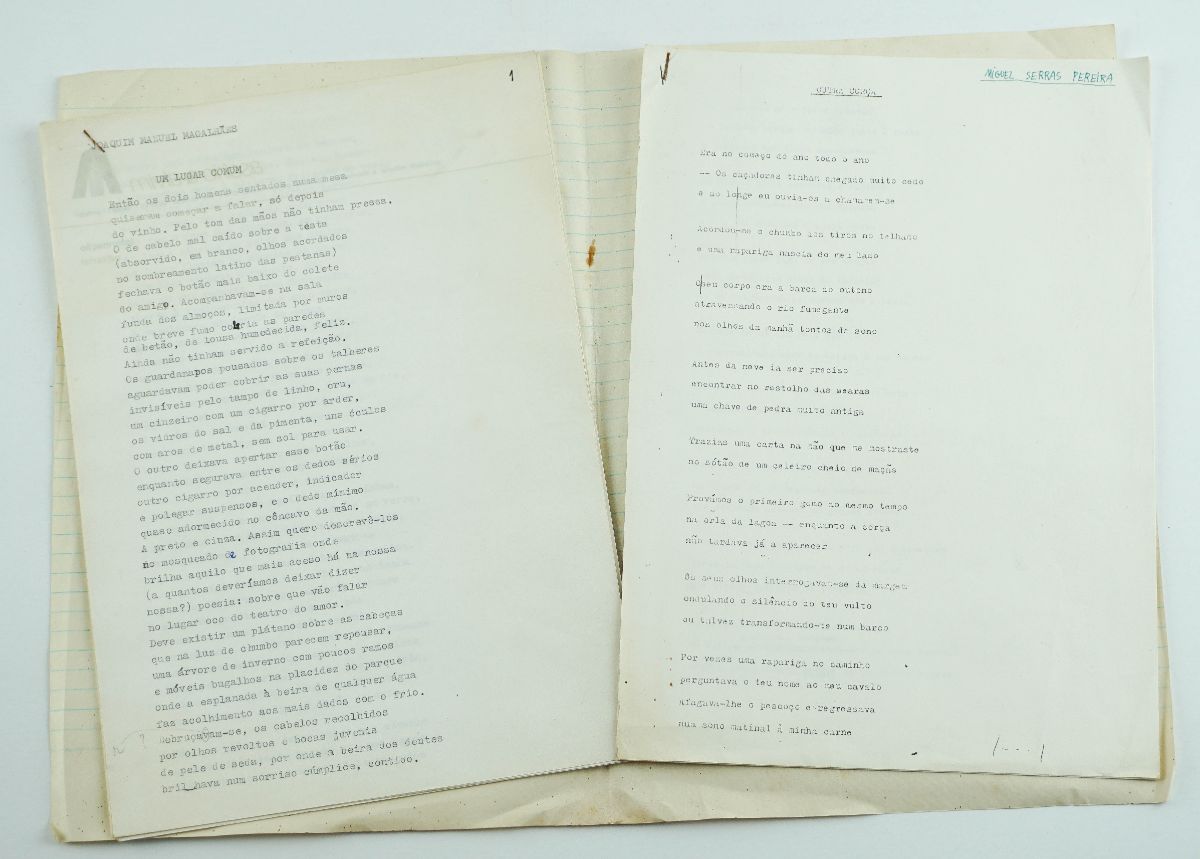 1
JOAQUIM MANUEL MAGALHÃES
UM LUGAR COMUM
Então os dois homens sentados numa mesa
quiseram começar a falar, só depois
do vinho. Pelo tom das mãos não tinham pressa.
O de cabelo mal caído sobre a testa
(absorvido, em branco, olhos acordados
no sombreamento latino das pestanas)
fechava o botão mais baixo do colete
do amigo. Acompanhavam-se na sala
funda dos almoços, limitada por muros
onde breve fumo cobria as paredes
de betão, de lousa humedecida, feliz.
Ainda não tinham servido a refeição.
Os guardanapos pousados sobre os talheres
aguardavam poder cobrir as suas pernas
invisíveis pelo tampo de linho, cru,
um cinzeiro com um cigarro por arder,
os vidros do sal e da pimenta, uns óculos
com aros de metal, sem sol para usar.
O outro deixava apertar esse botão
enquanto segurava entre os dedos sérios
outro cigarro por acender, indicador
e polegar suspensos, e o dedo mínimo
quase adormecido no côncavo da mão.
A preto e cinza. Assim quero descrevê-los
no mosqueado de fotografia onde
brilha aquilo que mais aceso há na nossa
(a quantos deveríamos deixar dizer
nossa?) poesia: sobre que vão falar
no lugar oco do teatro do amor.
Deve existir um plátano sobre as cabeças
que na luz de chumbo parecem repousar,
uma árvore de inverno com poucos ramos
e móveis bugalhos na placidez do parque
onde a esplanada à beira de qualquer água
faz acolhimento aos mais dados com o frio.
Debruçavam-se, os cabelos recolhidos
por olhos revoltos e bocas juvenis
de pele de seda, por onde a beira dos dentes
brilhava num sorriso cúmplice, contido.
MIGUEL SERRAS PEREIRA
OUTRA CORÇA
Era no começo do ano todo o ano
-- Os caçadores tinham chegado muito cedo
e ao longe eu ouvia-os a chamarem-se
Acordou-me o chumbo dos tiros no telhado
e uma rapariga nascia do meu lado
O seu corpo era a barca do outono
atravessando o rio fumegante
nos olhos da manhã tontos de sono
Antes da neve ia ser preciso
encontrar no restolho das searas
uma chave de pedra muito antiga
Trazias uma carta na mão que me mostraste
no sótão de um celeiro cheio de maçãs
Provámos o primeiro gomo ao mesmo tempo
na orla da lagoa -- enquanto a corça
não tardava já a aparecer
Os seus olhos interrogavam-se da margem
ondulando o silêncio do teu vulto
ou talvez transformando-te num barco
Por vezes uma rapariga no caminho
perguntava o teu nome ao meu cavalo
afagava-lhe o pescoço e regressava
num sono matinal à minha carne
/---/